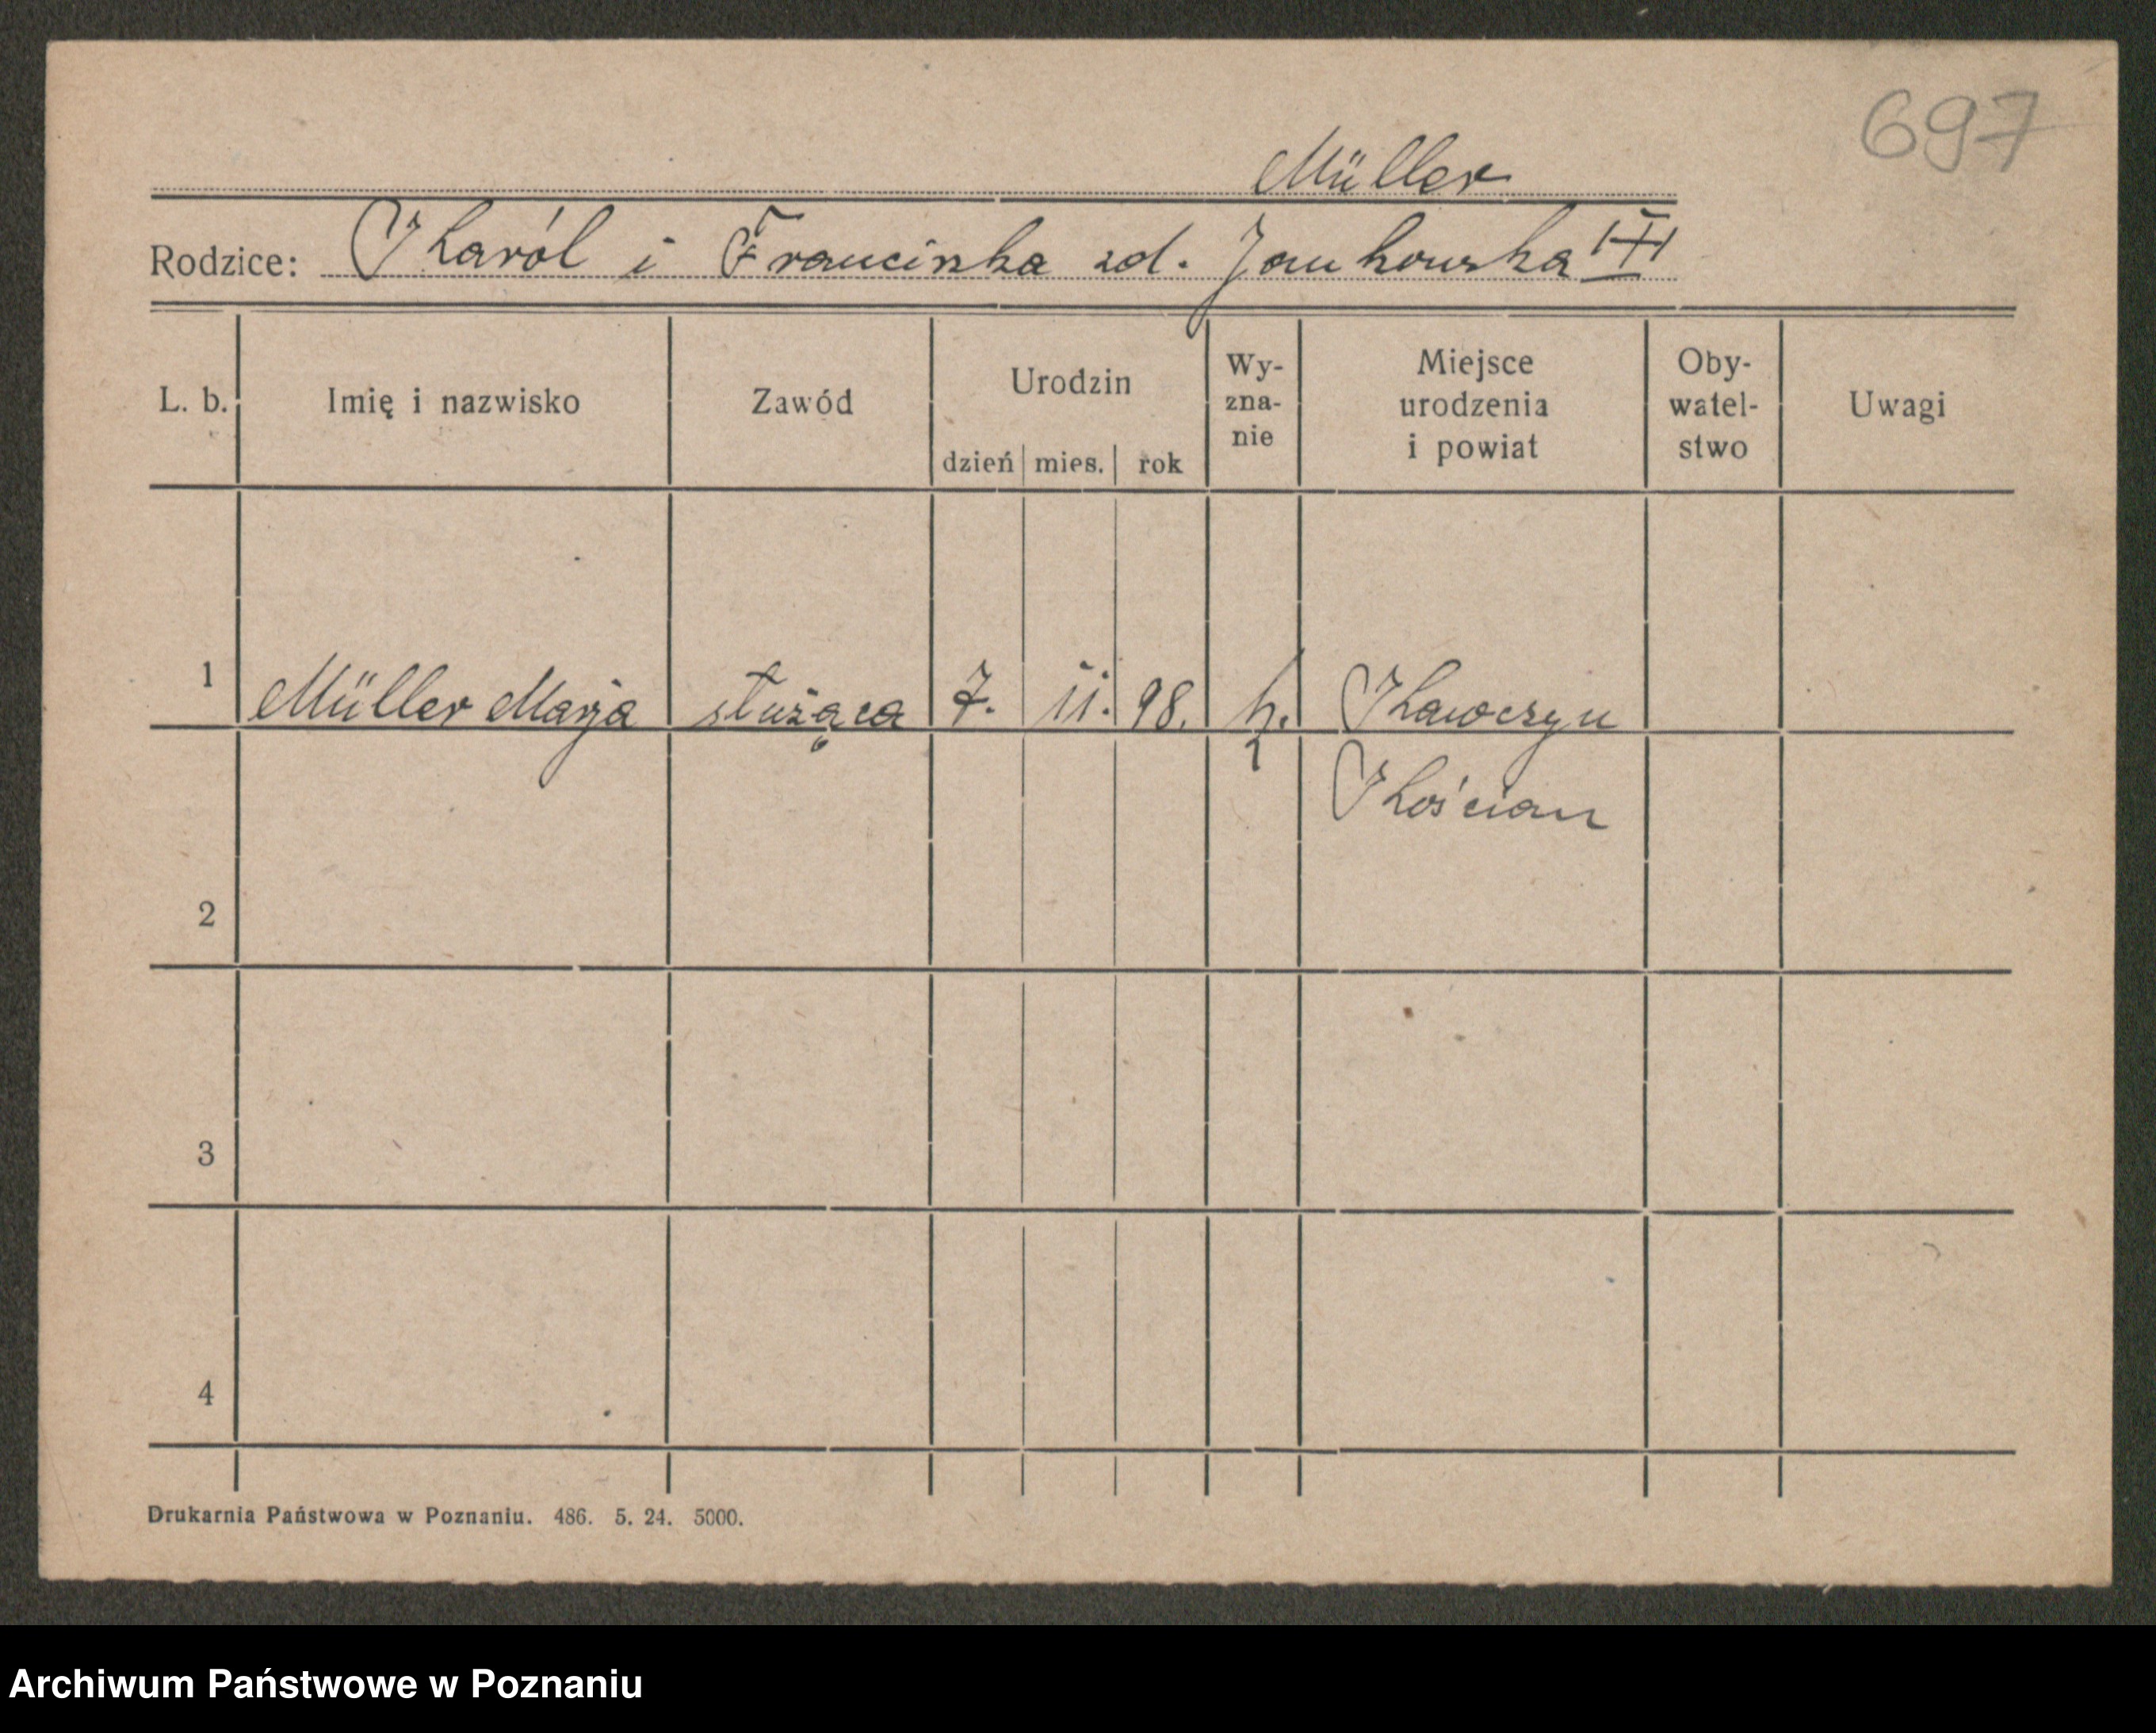 697
Müller
Rodzice: Karól i Franciszka zd. Jankowska
L. b. Imię i nazwisko Zawód Urodzin dzień mies. rok Wy-zna-nie Miejsce urodzenia i powiat Oby-watel-stwo Uwagi
1 Müller Marja służąca 7. 11. 98. k. Kawczyn
Kościan
2
3
4
Drukarnia Państwowa w Poznaniu. 486. 5. 24. 5000.
Archiwum Państwowe w Poznaniu